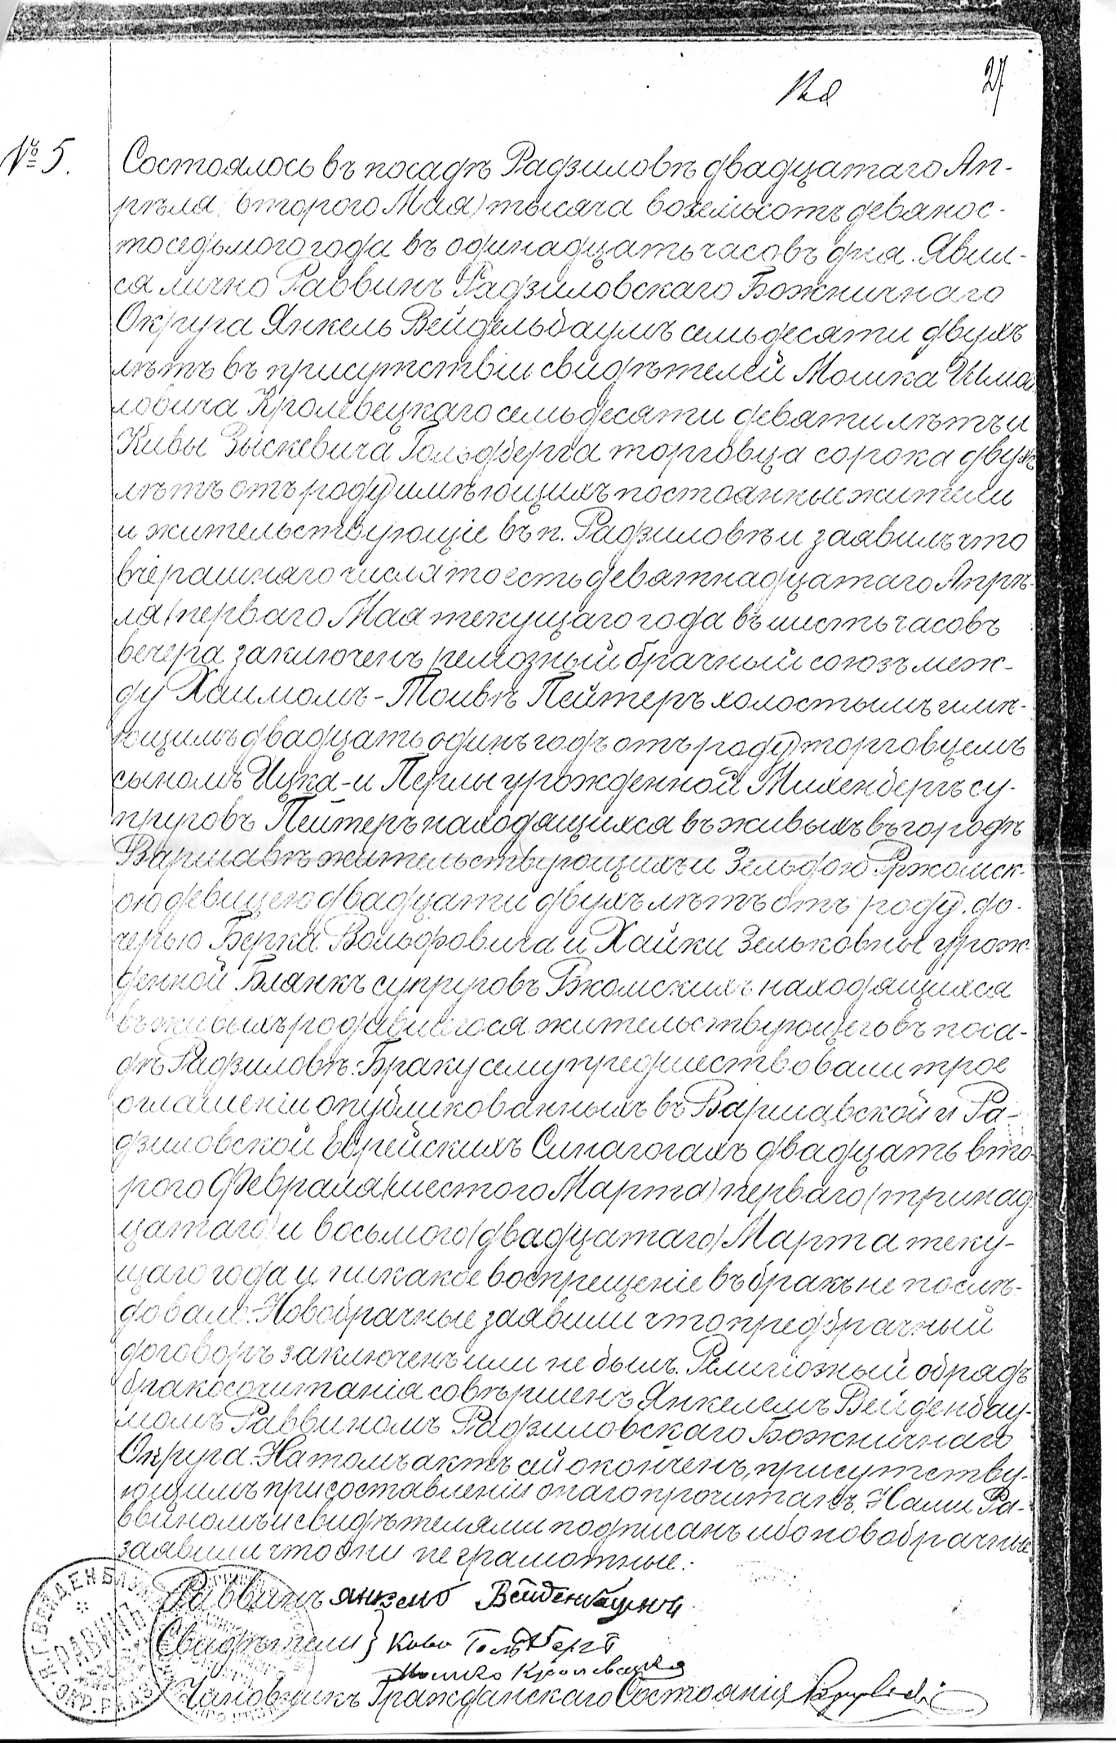 27
№ 5.
Состоялось въ посадѣ Радзиловѣ двадцатаго Ап-
рѣля (второго Мая) тысяча восемьсотъ девянос-
то седьмого года въ одинадцать часовъ дня. Явил-
ся лично Раввинъ Радзиловскаго Божничнаго
Округа Янкель Вейдельбаумъ семьдесяти двухъ
лѣтъ въ присутствіи свидѣтелей Мошка
ловича Кролевецкаго семьдесяти девяти лѣтъ и
Кивы Зыскевича Гольдберга торговца сорока двухъ
лѣтъ отъ роду имѣющихъ постоянные жители
и жительствующіе въ п. Радзиловѣ и заявилъ что
вчерашняго числа то есть девятнадцатаго Апрѣ-
ля (перваго Мая текущаго года въ шесть часовъ
вечера заключенъ религіозный брачный союзъ меж-
ду Хаимомъ-Товіѣ Пейтеръ холостымъ имѣ-
ющимъ двадцать одинъ годъ отъ роду торговцемъ
сыномъ Ицка-и Перлы урожденной Миленбергъ су-
пруговъ Пейтеръ находящихся въ живыхъ въ городѣ
Варшавѣ жительствующихъ и Зельдою Ржомск-
ою девицею двадцати двухъ лѣтъ отъ роду. до-
черью Берка Вольфовича и Хайки Зельковны урож-
денной Бланкъ супруговъ Ржомскихъ находящихся
въ живыхъ жительствующего въ поса-
дѣ Радзиловѣ. Браку сему предшествовали трое
оглашеніи опубликованныхъ въ Варшавской и Ра-
дзиловской Еврейскихъ Синагогахъ двадцать вто-
рого Февраля (шестого Марта) перваго (тринад
цатаго) и восьмого (двадцатаго) Марта теку-
щаго года и никакое воспрещеніе въ бракъ не послѣ-
довало. Новобрачные заявили что предбрачный
договоръ заключенъ ими не былъ. Религіозный обрядъ
бракосочитанія совѣршенъ Янкелемъ Вейденбау-
момъ Раввиномъ Радзиловскаго Божничнаго
Округа. На томъ актъ сей оконченъ, присутству-
ющимъ при составленіи онаго прочитанъ. Нами Ра-
ввиномъ и свидѣтелями подписанъ ибо новобрачные
заявили что они не грамотные.
Раввинъ Янкель Вейденбаумъ
Свидѣтели } Кива Гольдбергъ
Мошко Кролевецкiй
Чиновникъ Гражданскаго Состоянія
ВЕЙДЕНБАУМ
РАВВИНЪ